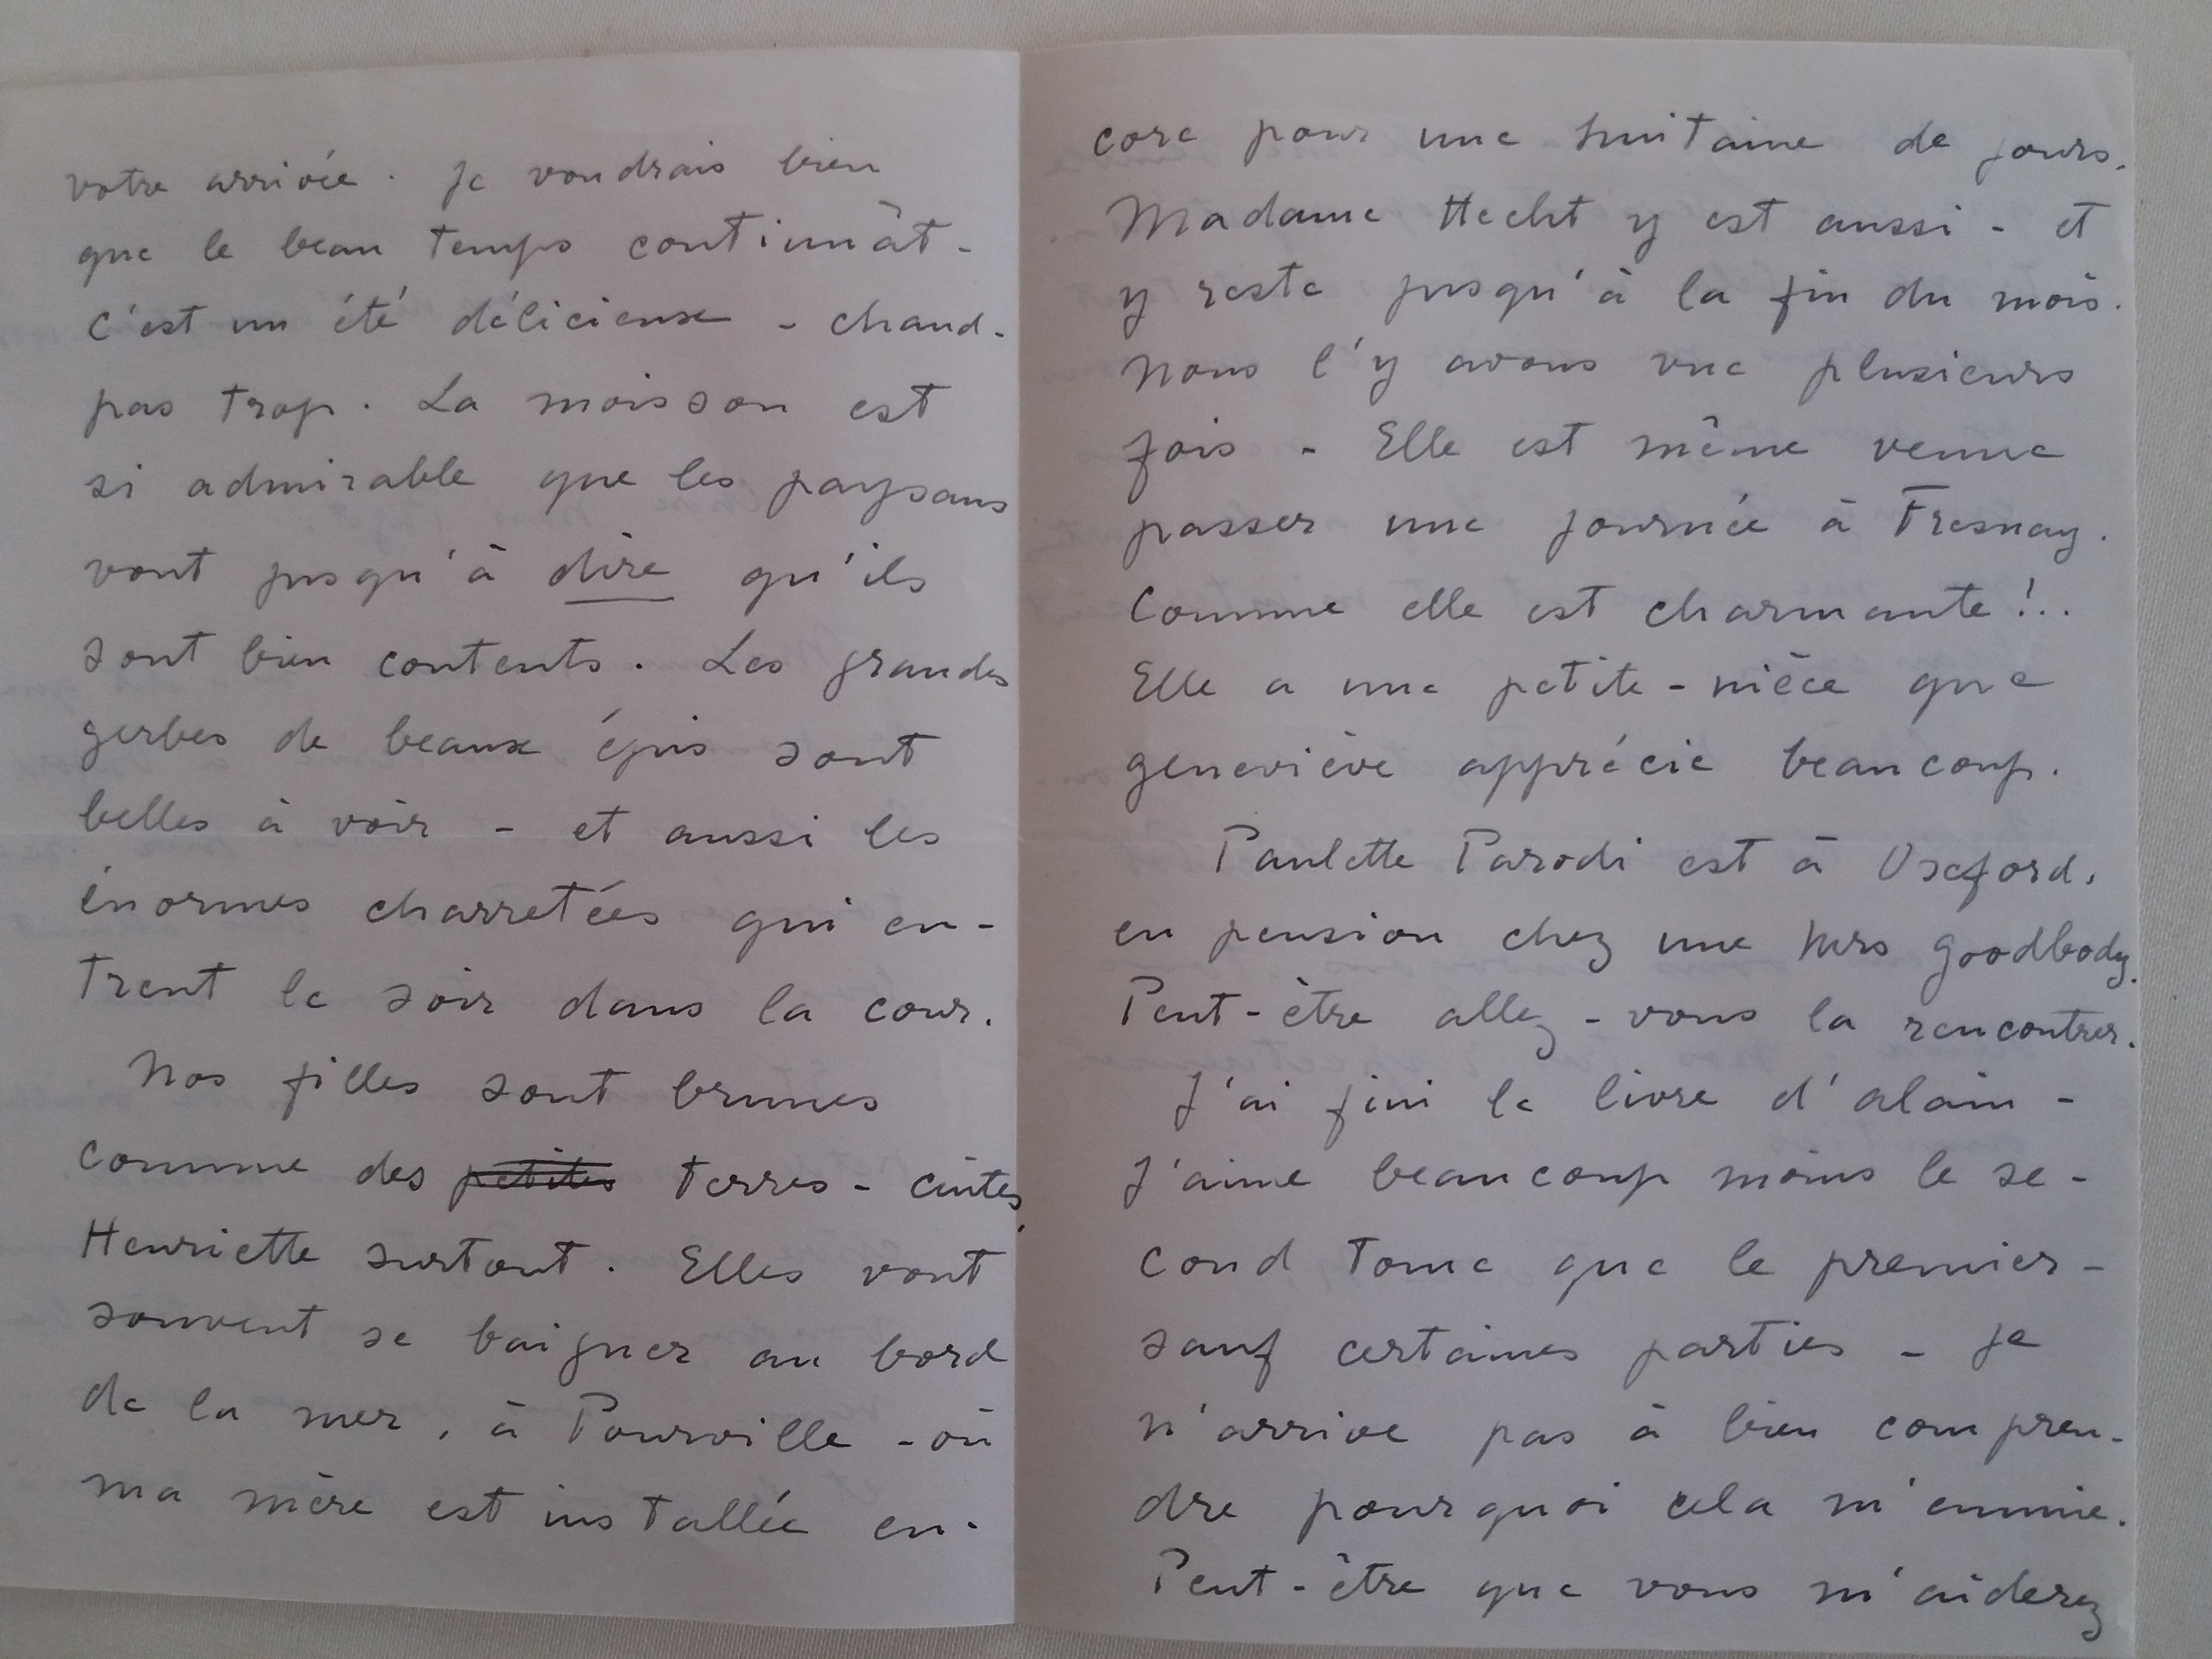 votre arrivée. Je voudrais bien
que le beau temps continuât -
c'est un été délicieux - chaud -
pas trop. La moisson est
si admirable que les paysans
vont jusqu'à dire qu'ils
sont bien contents. Les grandes
gerbes de beaux épis sont
belles à voir - et aussi les
énormes charretées qui en-
trent le soir dans la cour.
Nos filles sont brunes
comme des petites terres-cuites,
Henriette surtout. Elles vont
souvent se baigner au bord
de la mer, à Pourville - où
ma mère est installée en-
core pour une huitaine de jours.
Madame Hecht y est aussi - et
y reste jusqu'à la fin du mois.
Nous l'y avons vue plusieurs
fois - Elle est même venue
passer une journée à Fresnay.
Comme elle est charmante!..
Elle a une petite-nièce que
geneviève apprécie beaucoup.
Paulette Parodi est à Oxford,
en pension chez une Mrs Goodbody.
Peut-être allez-vous la rencontrer.
J'ai fini le livre d'alain -
J'aime beaucoup moins le se-
cond tome que le premier -
sauf certaines parties - Je
n'arrive pas à bien compren-
dre pourquoi cela m'ennuie.
Peut-être que vous m'aiderez